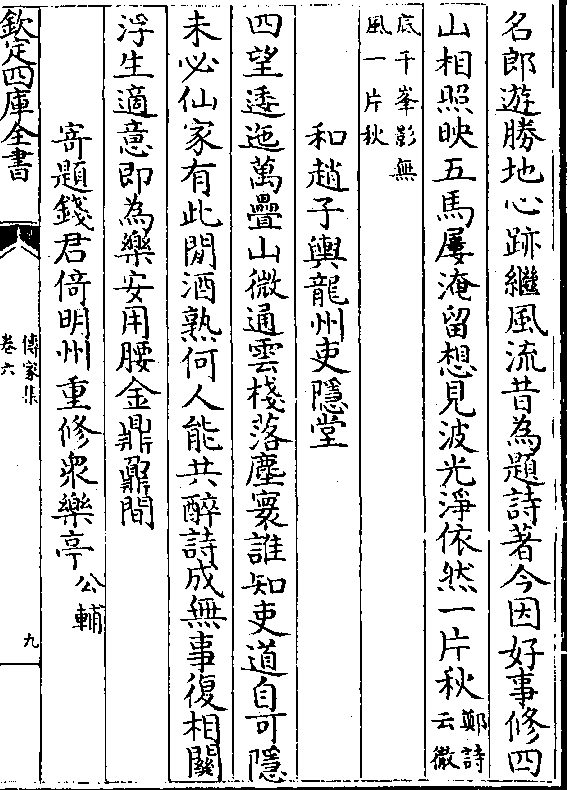 名郎遊勝地心跡繼風流昔為題詩著今因好事修四
山相照映五馬屢淹留想見波光淨依然一片秋鄭詩云微
底千峯影無風一片秋
和趙子輿龍州吏隱堂
四望逶迤萬疊山微通雲棧落塵寰誰知吏道自可隱
未必仙家有此閒酒熟何人能共醉詩成無事復相關
浮生適意即為樂安用腰金鼎鼐間
寄題錢君倚明州重修衆樂亭公輔
欽定四庫全書
傳家集
卷六
九